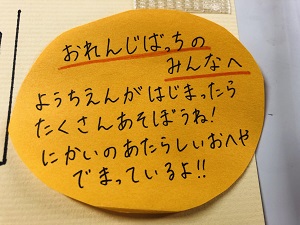 おれんじばっちの
みんなへ
ようちえんがはじまったら
たくさんあそぼうね!
にかいのあたらしいおへや
でまっているよ!!